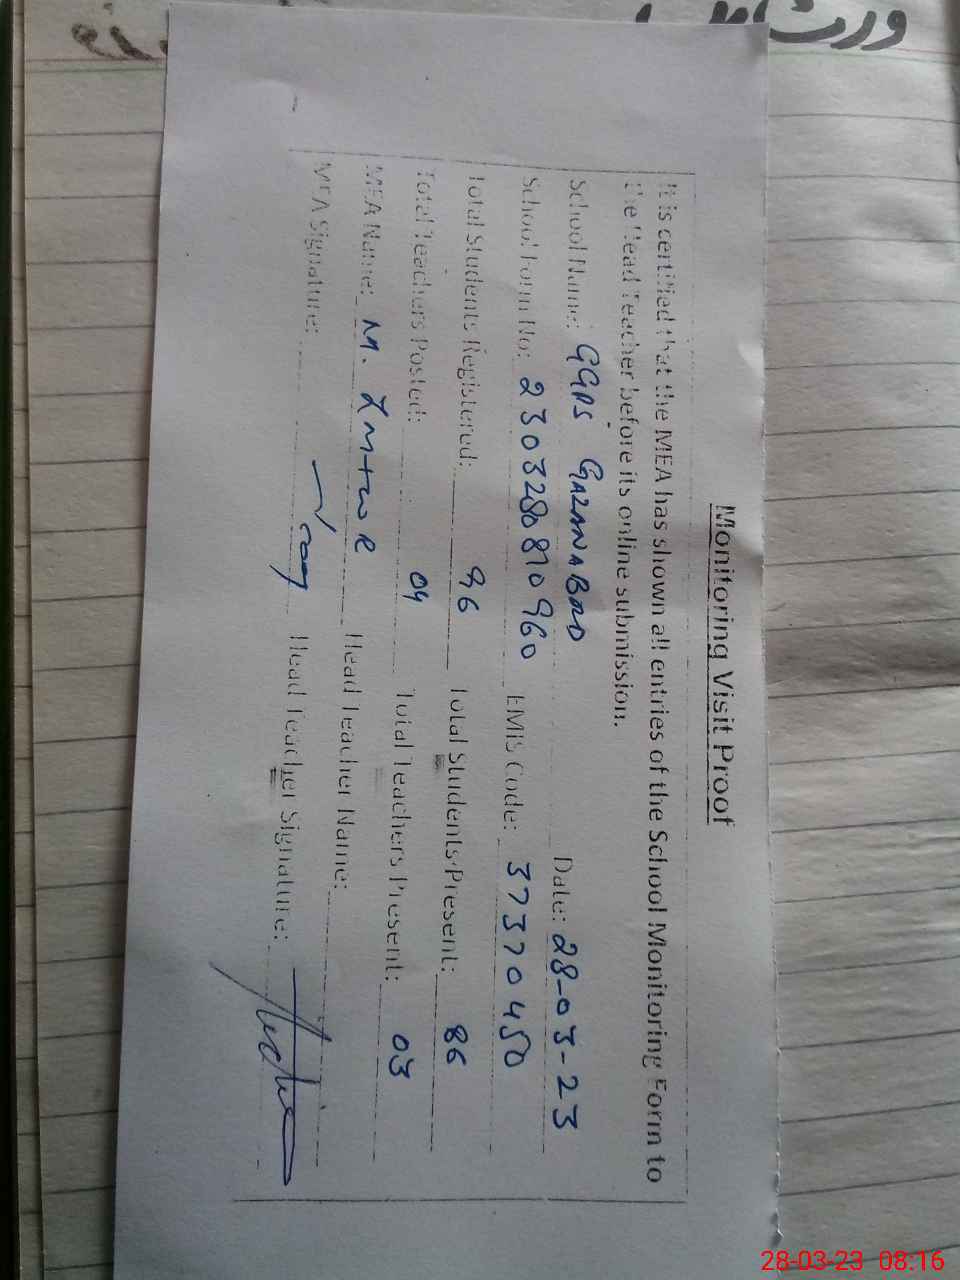 Monitoring Visit Proof
It is certified that the MEA has shown all entries of the School Monitoring Form to
the Head Teacher before its online submission.
School Name: GGPS Date: 28-03-23
School Form No: EMIS Code: 37370450
Total Students Registered: 96 Total Students Present: 86
Total Teachers Posted: 04 Total Teachers Present: 03
MEA Name: M. Head Teacher Name:
MEA Signature: Head Teacher Signature:
28-03-23 08:16